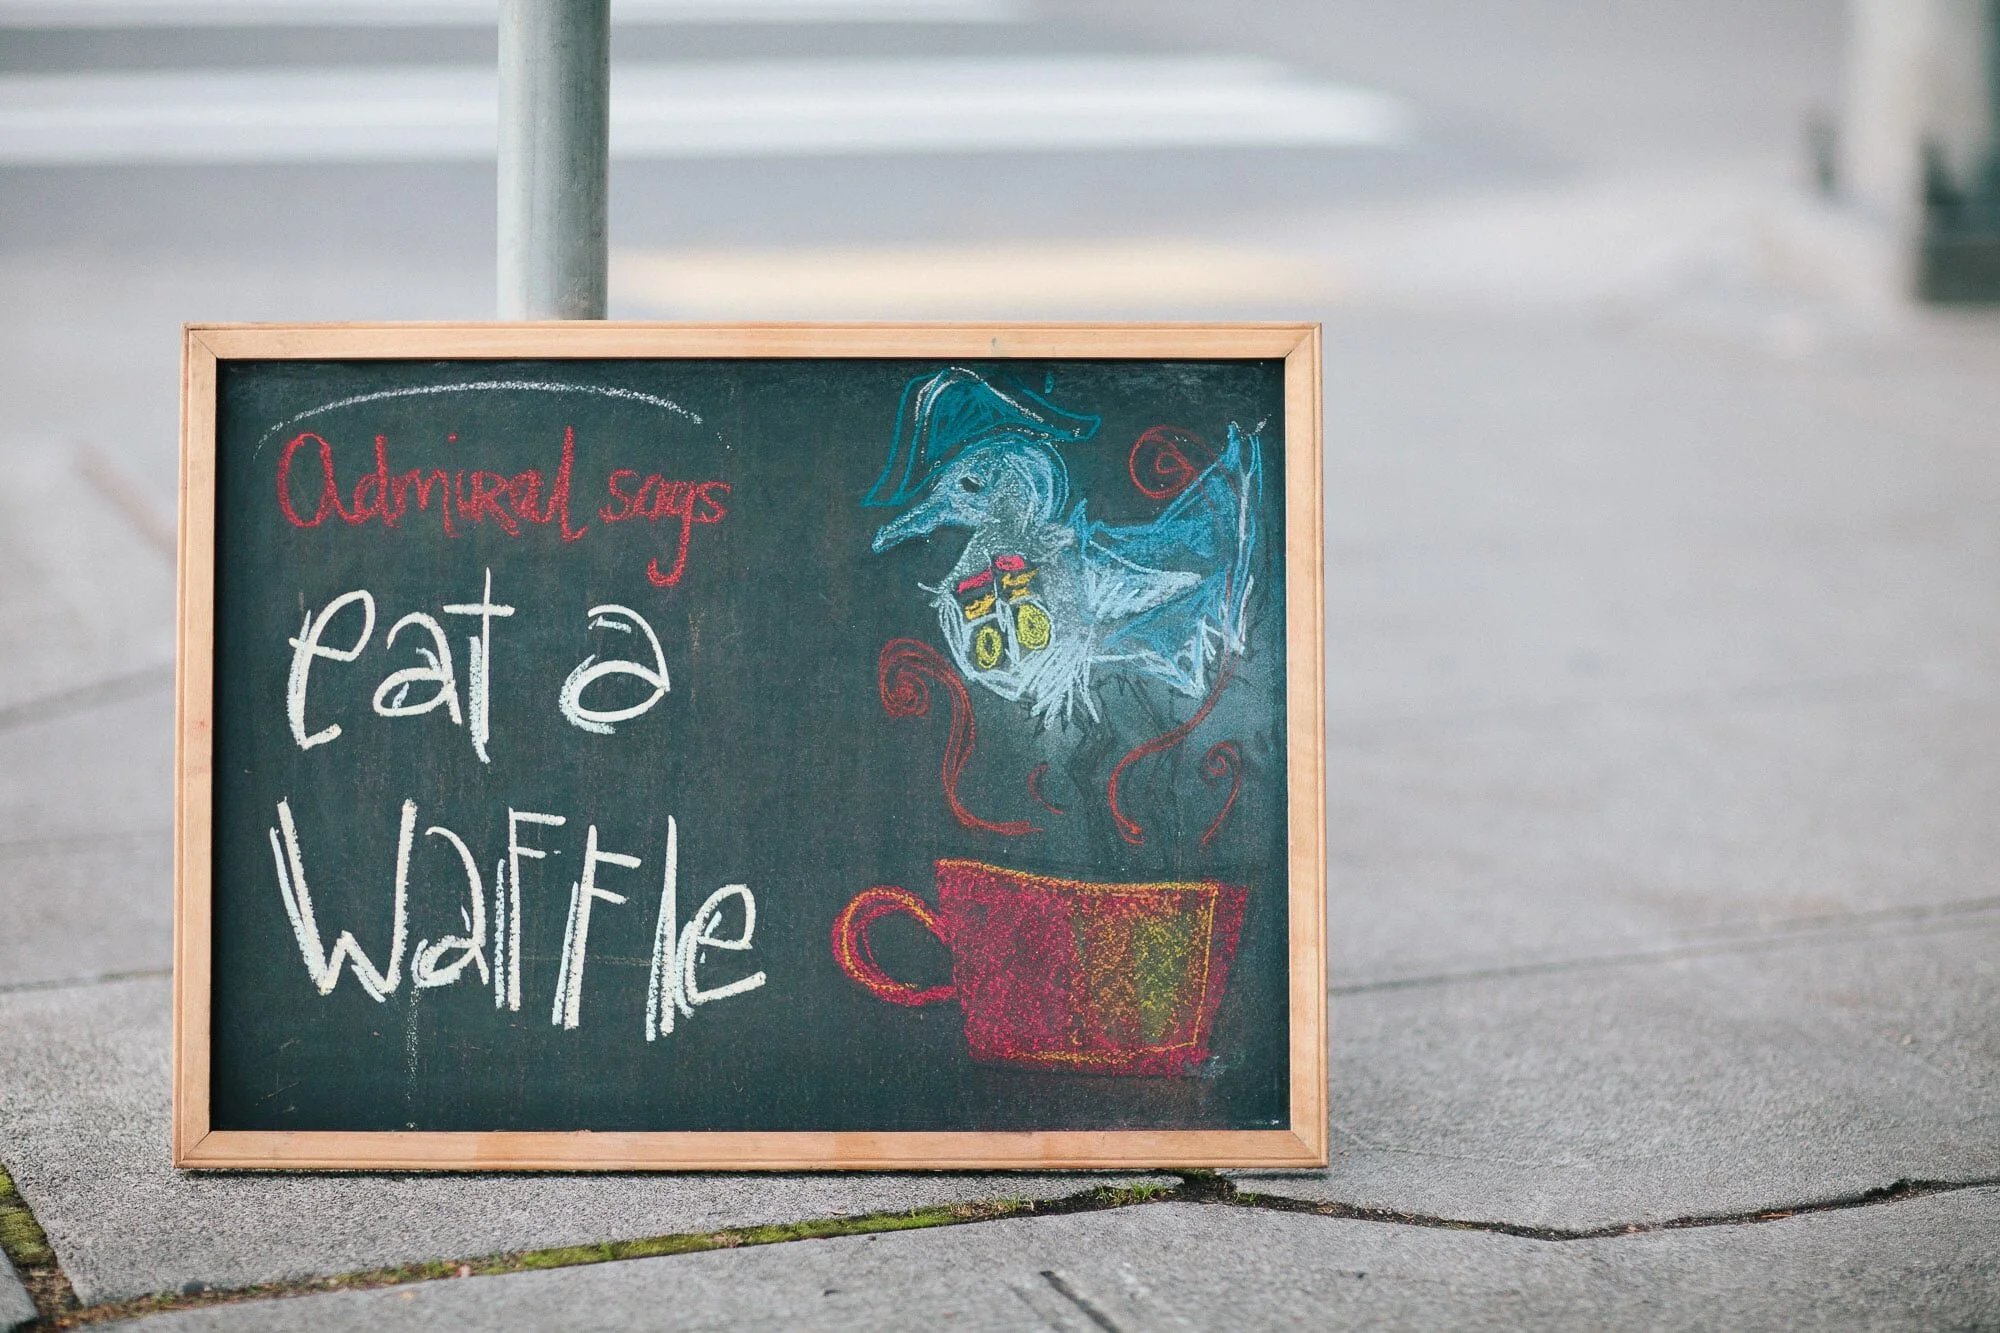 Admiral says
eat a
Waffle